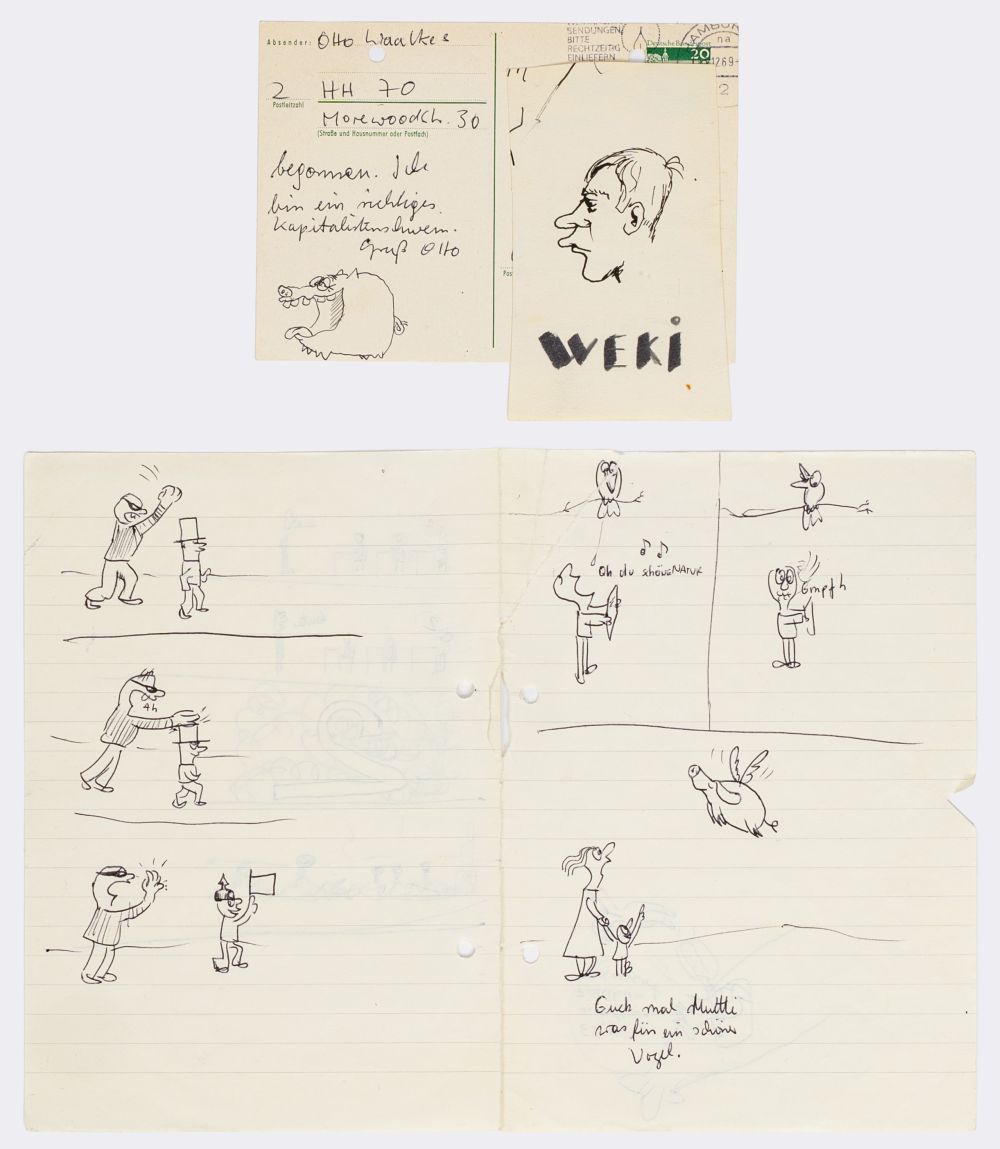 Absender: Otto Waalkes
2 HH 70
Postleitzahl
Morewoodstr. 30
(Straße und Hausnummer oder Postfach)
begonnen. Ich
bin ein richtiges
Kapitalistenschwein.
Gruß Otto
SENDUNGEN
BITTE
RECHTZEITIG
EINLIEFERN
Deutsche Bundespost
20
na
12.69-
2
Pos
WEKI
Oh du schöne NATUR
Gmpfh
Ah
Guck mal Mutti
was für ein schöner
Vogel.